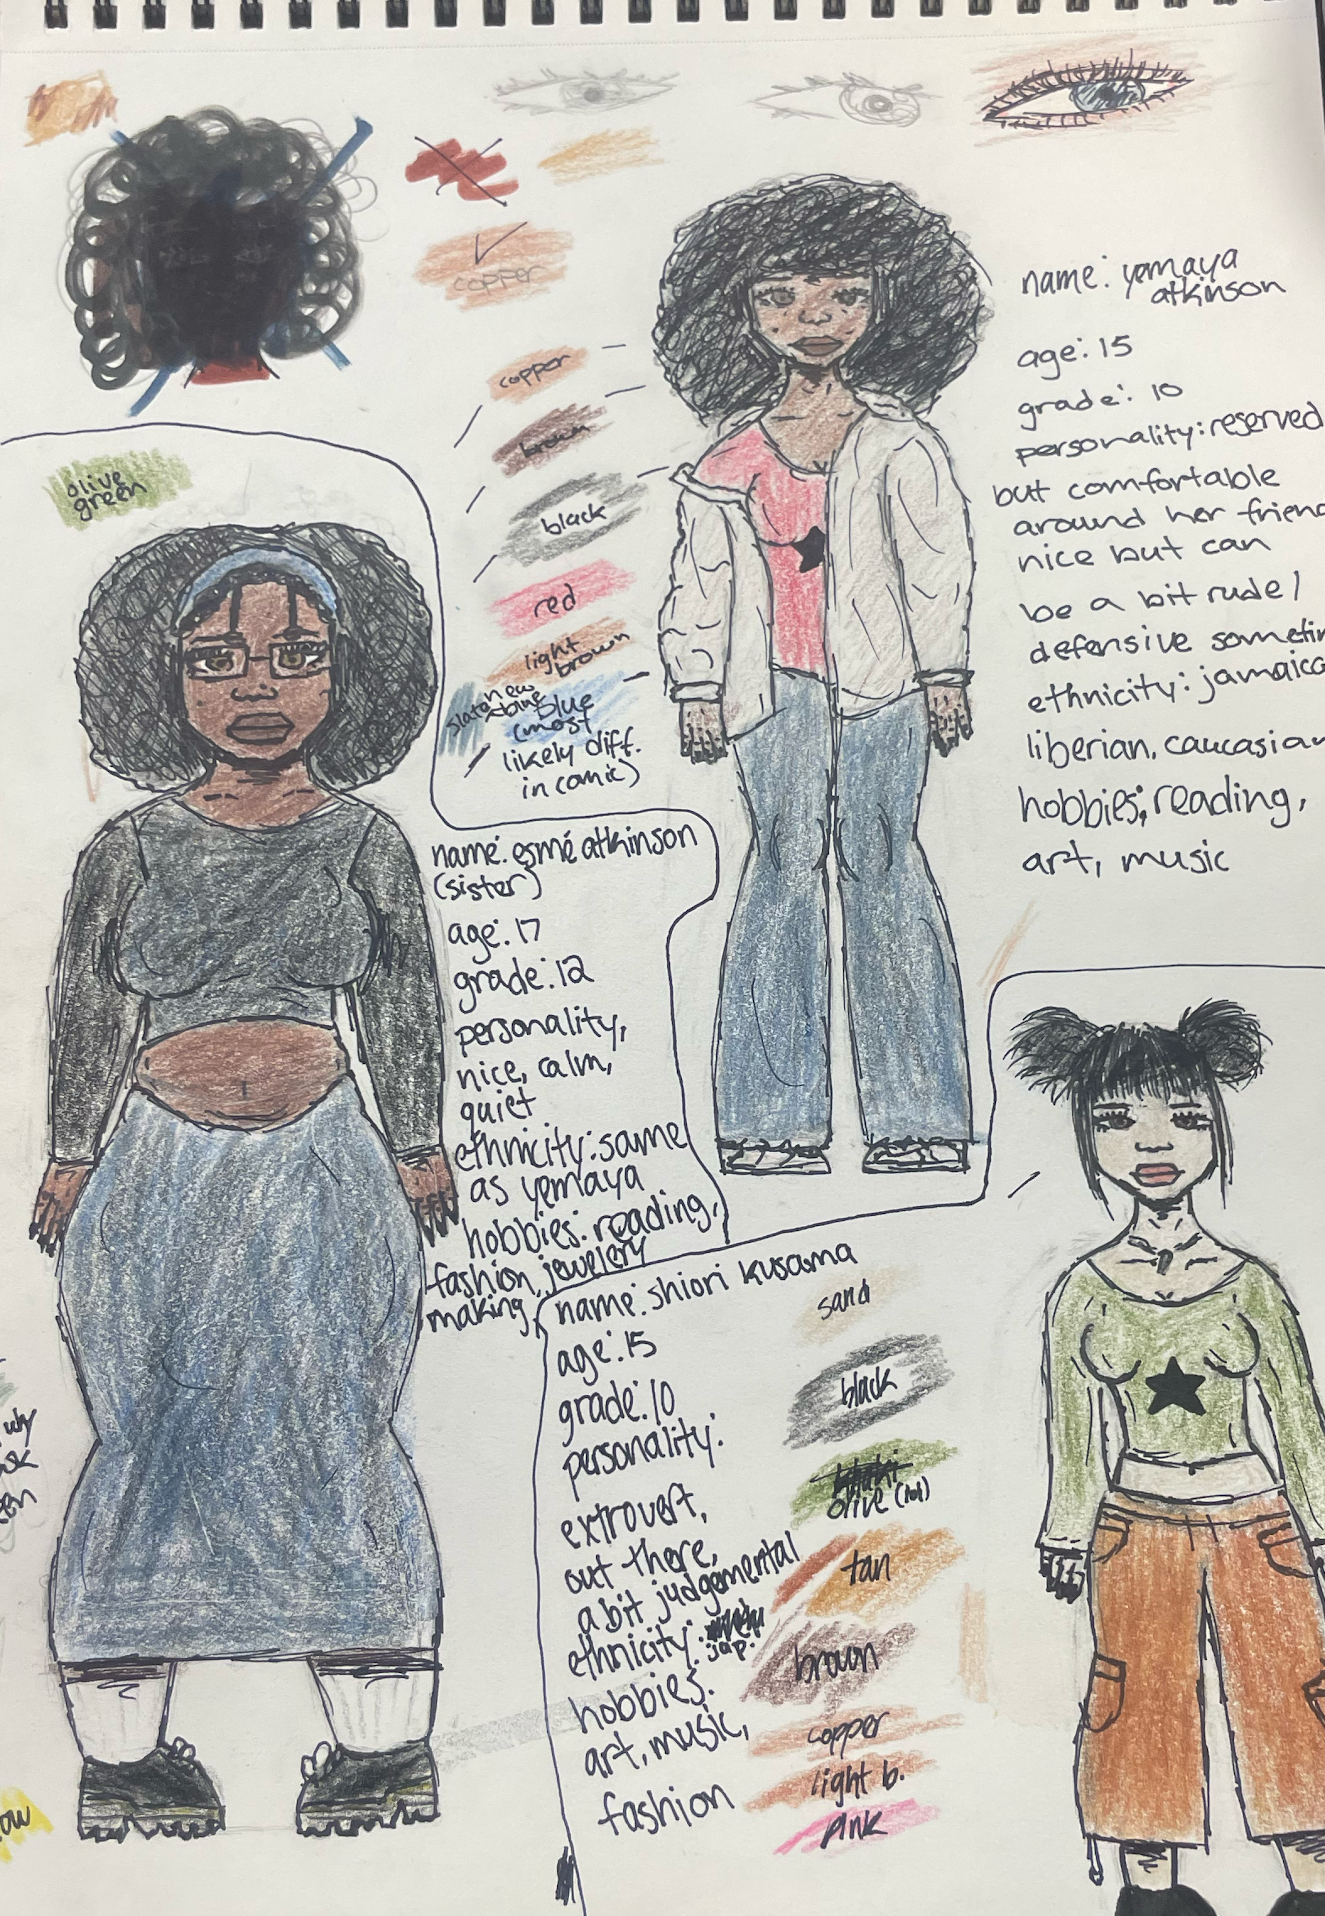 copper
name: yemaya
atkinson
age: 15
grade: 10
personality: reserved
but comfortable
around her friend
nice but can
be a bit rude /
defensive sometim
ethnicity: jamaica
liberian, caucasian
hobbies; reading,
art, music
copper
brown
black
red
light
brown
new
slate blue
blue
(most
likely diff.
in comic)
olive
green
name: esmé atkinson
(sister)
age: 17
grade: 12
personality,
nice, calm,
quiet
ethnicity: same
as yemaya
hobbies: reading,
fashion, jewelery
making,
name: shiori kusama
age: 15
grade: 10
personality:
extrovert,
out there,
a bit judgemental
ethnicity:
jap.
hobbies:
art, music,
fashion
sand
black
olive (lol)
tan
brown
copper
light b.
pink
ow